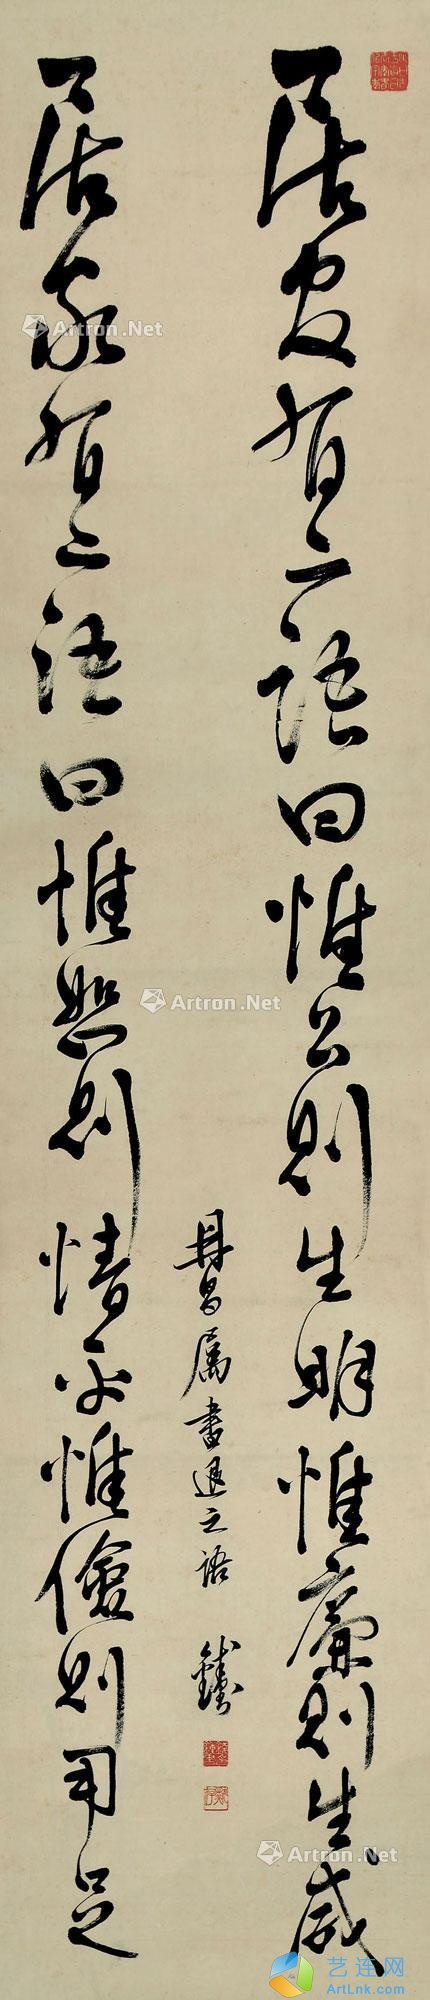 居官有二語曰惟公則生明惟廉則生威
昌属書退之語
居家有二語曰惟恕則情平惟儉則用足
Artron.Net
Artron.Net
Artron.Net
Artron.Net
Artron.Net
Artron.Net
艺连网
ArtLnk.com